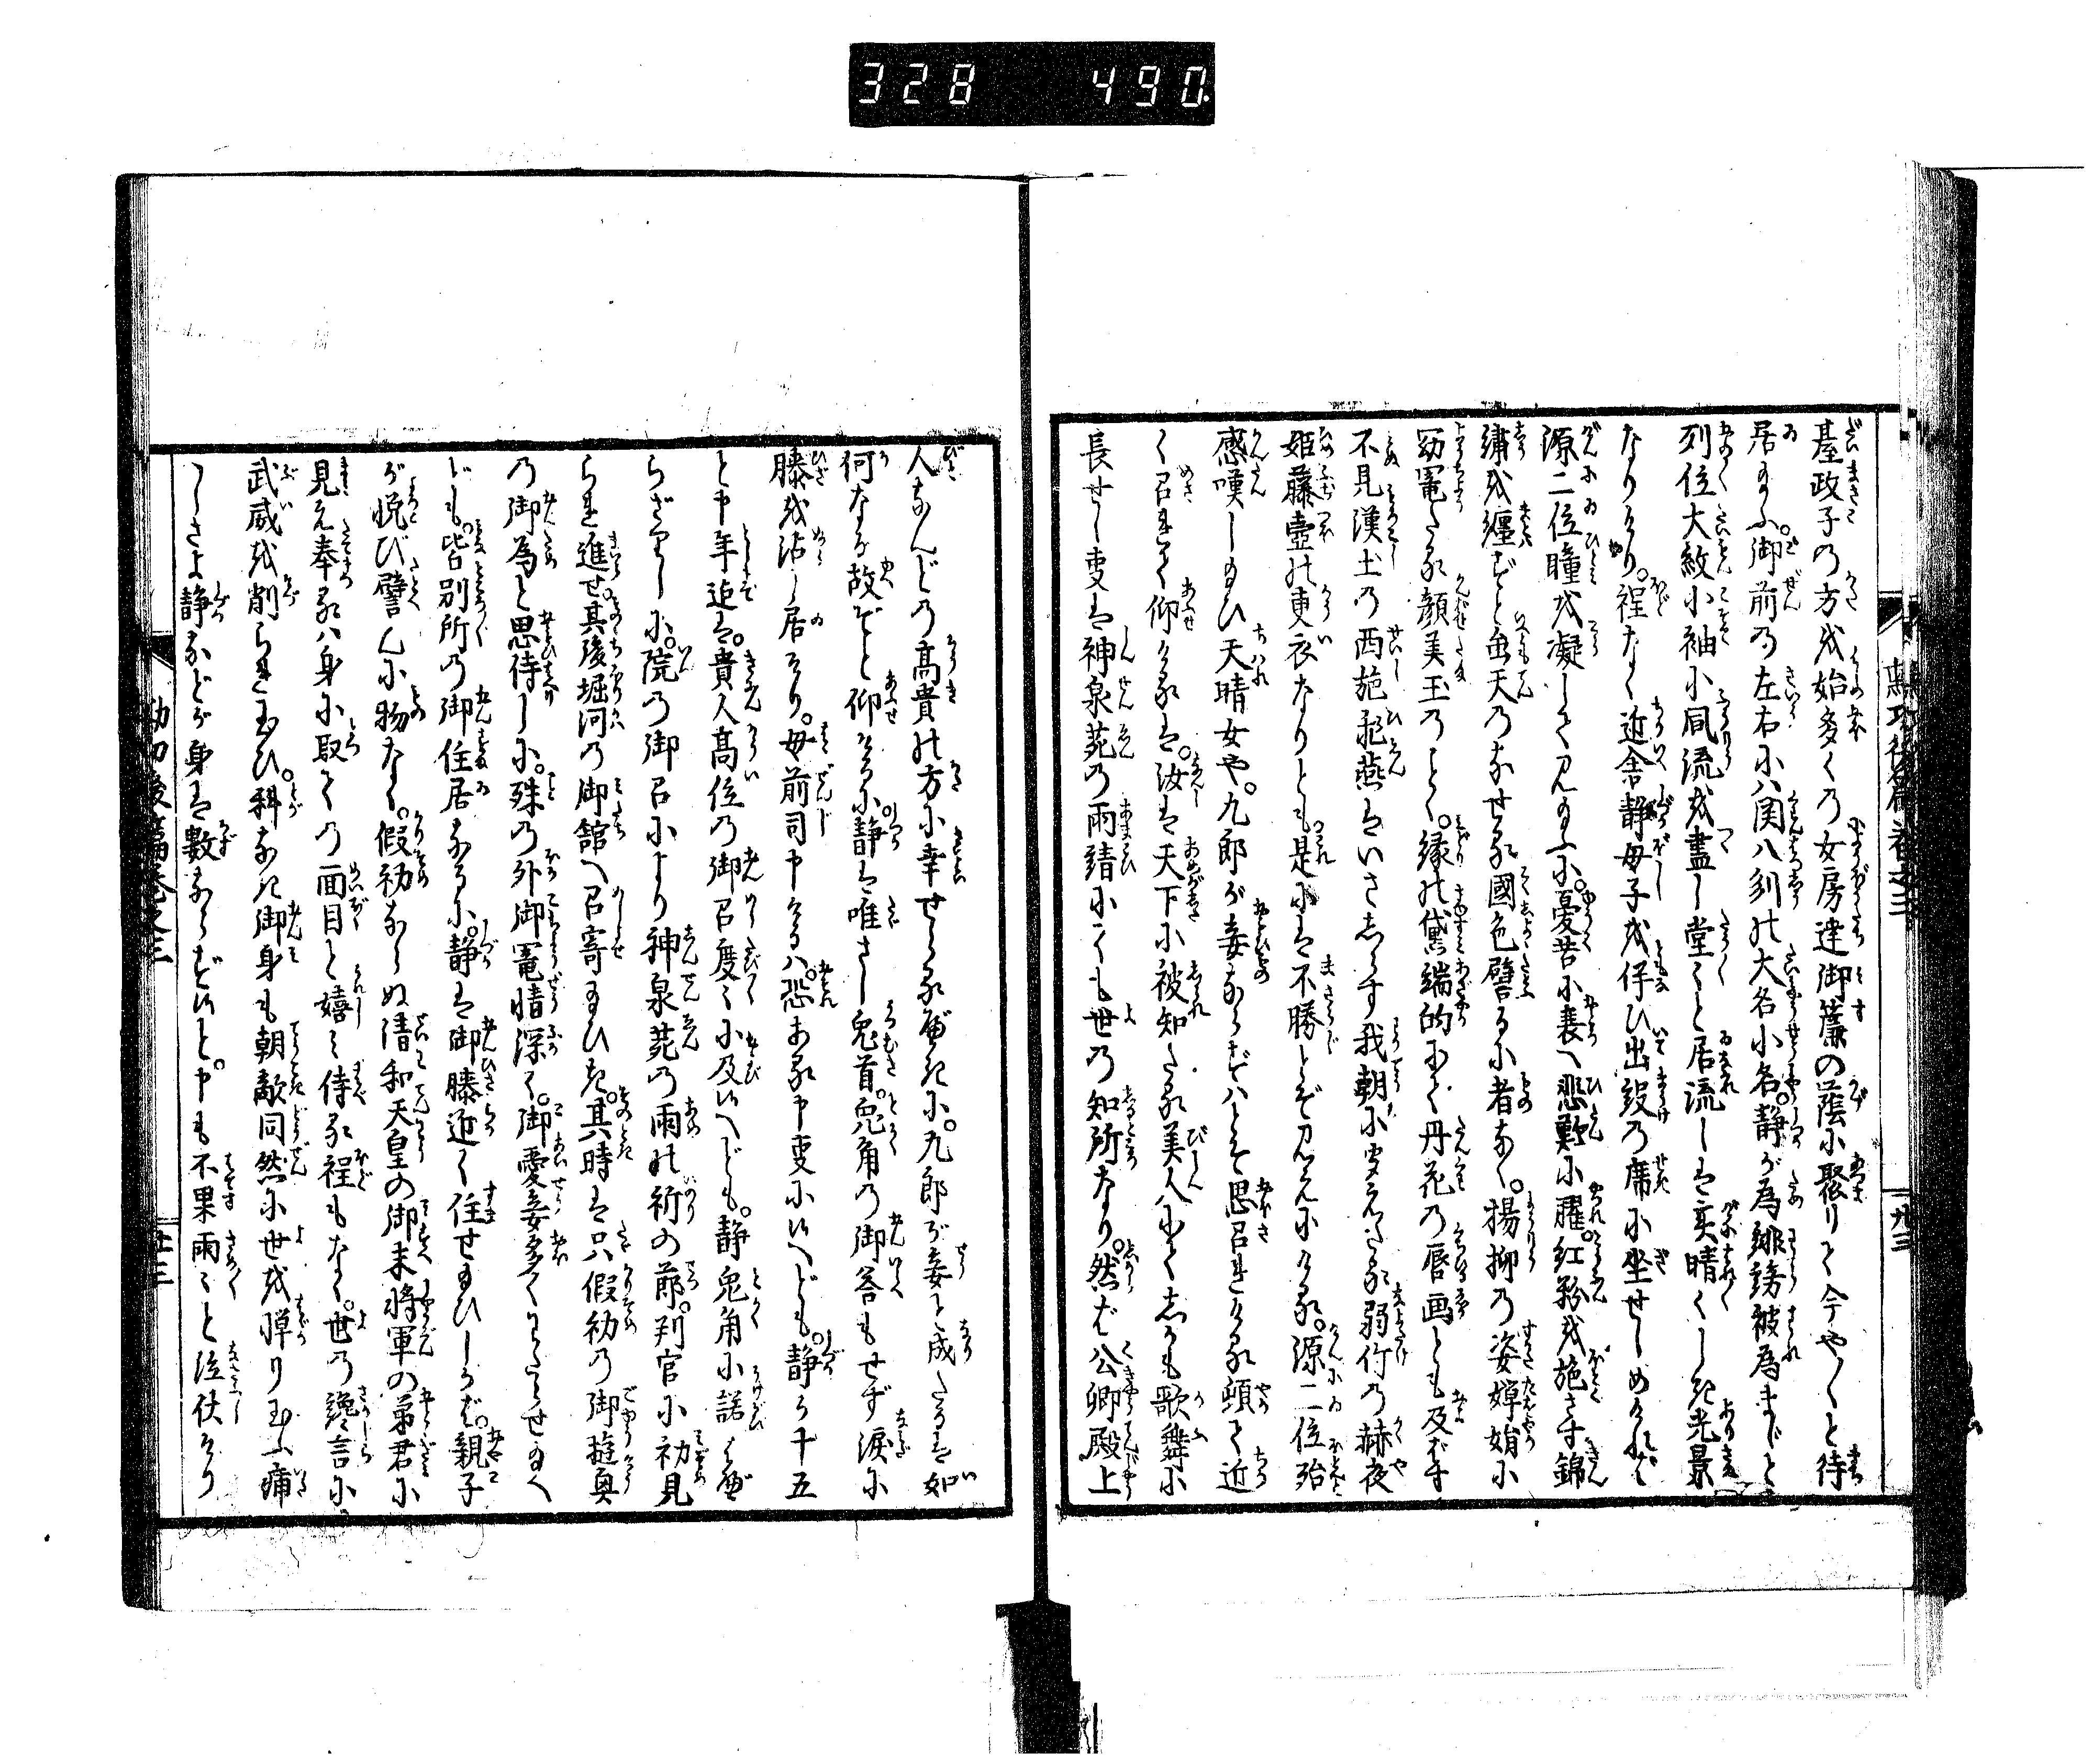 328 490
臺政子の方を始多くの女房達御簾の蔭に聚りて今や〱と待
居給ふ。御前の左右に八関八刕の大名小名。静が為誹謗被為まじと
列位大紋小袖に風流を盡し堂々と居流しは実晴〱しき光景
なりけり。程なく近舎静母子を伴ひ出設の席に坐せしめければ
源二位瞳を凝して見給ふに。憂苦に衰へ悲歎に臞。紅粉を施さず錦
繍を纏ざと虽天のなせる國色譬るに者なく。楊柳の姿嬋娟に
窈窕たる顔美玉のごく。緑の黛端的にて丹花の唇画とも及ばず
不見漢土の西施飛燕はいさしらず我朝に聞えたる弱竹の赫夜
姫藤壺の更衣なりとも是には不勝とぞ見えにける。源二位殆
感嘆し給ひ天晴女や。九郎が妾ならずバとぞ思召れける頓て近
く召れて仰けるは。汝は天下に被知たる美人にてしかも歌舞に
長せし叓は神泉苑の雨請にても世の知所なり。然ば公卿殿上
人なんどの高貴の方に幸せらるべきに。九郎が妾と成たるは如
何なる故ぞと仰けるに静は唯さし兎首。兎角の御答もせず涙に
膝を沾し居たり。母前司申けるハ。恐ある申叓に候へども。静が十五
と申年迄は。貴人高位の御召度々に及候へども。静兎角に諾はべ
らざりしに。院の御召により神泉苑の雨の祈の節。判官に初見
られ進せ。其後堀河の御舘へ召寄給ひき。其時は只假初の御遊興
の御為と思侍しに。殊の外御寵情深く。御愛妾多くわたらせ給へ
ども。皆別所の御住居なるに。静は御膝近く住せ給ひしかば。親子
が悦び譬んに物なく。假初ならぬ清和天皇の御末将軍の弟君に
見え奉るハ身に取ての面目と嬉み侍る程もなく。世の讒言に
武威を削られ玉ひ。科なき御身も朝敵同然に世を憚り玉ふ痛
しさよ静などが身は數ならず候と。申も不果雨々と泣伏たり